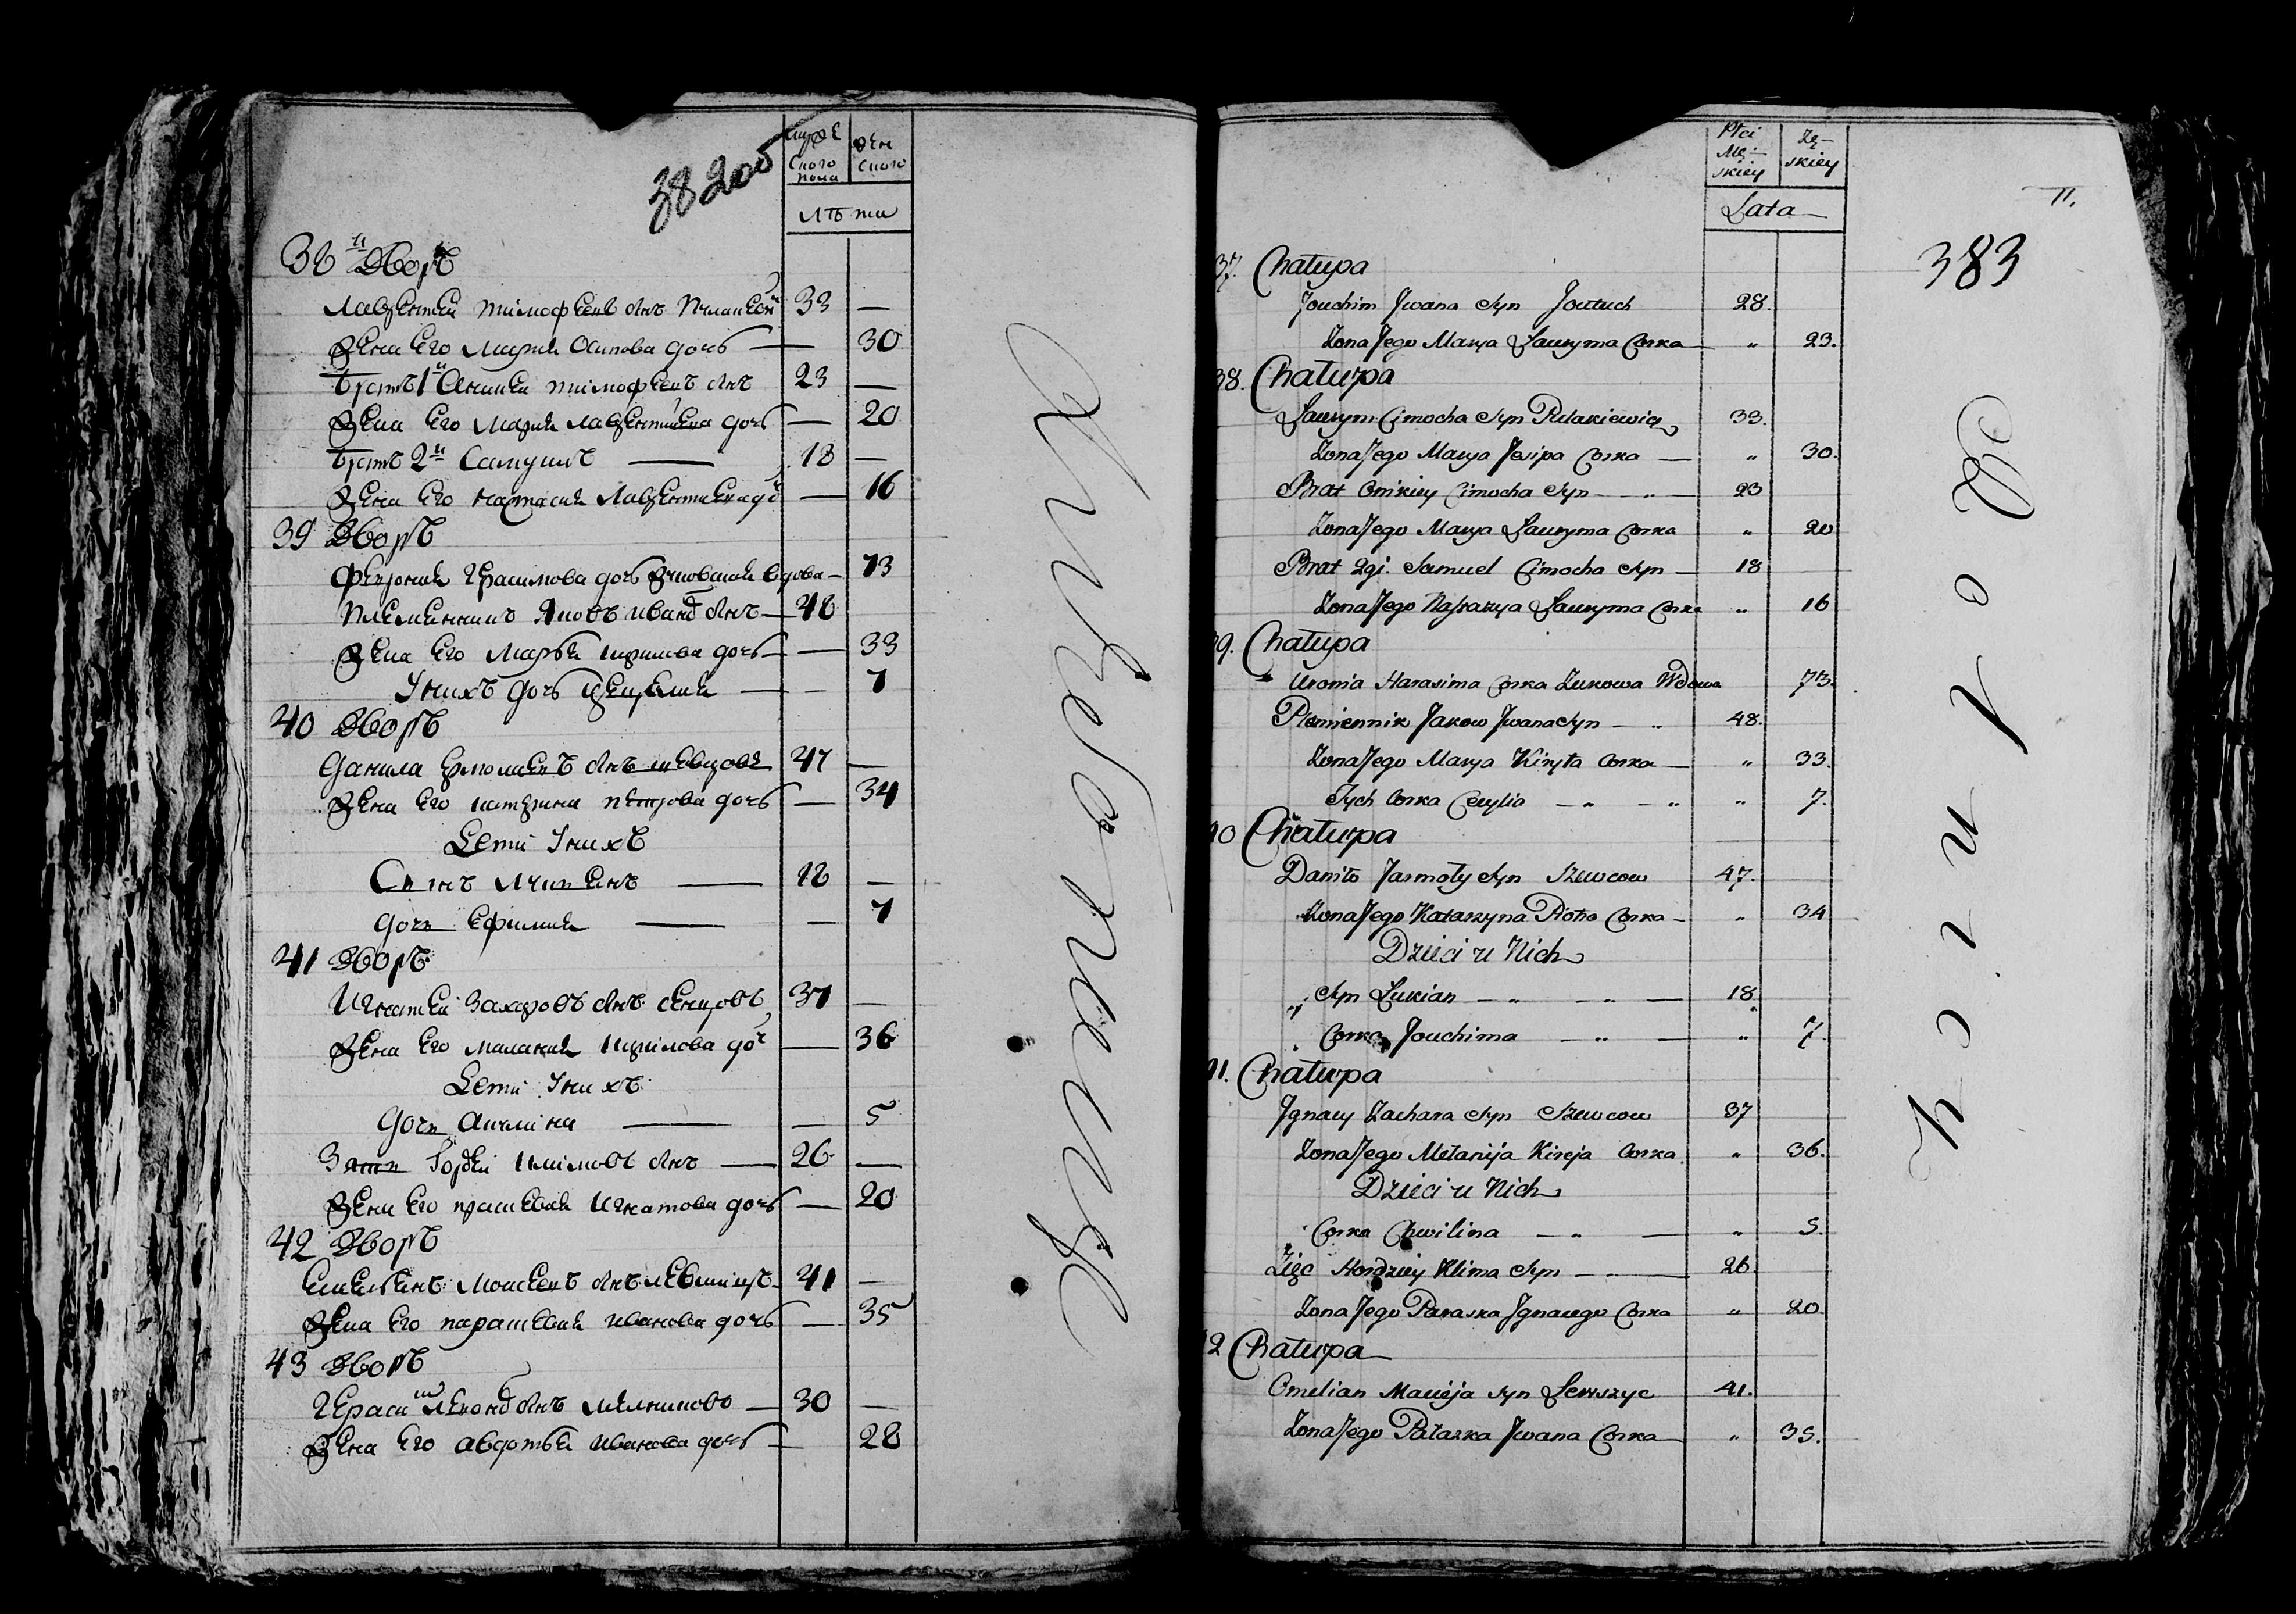 382 об
муже
ского
пола
жен
ского
лѣты
38й Дворъ
Лаврентей Тимофеевъ снъ 33 —
Жена его Марья Осипова дочь — 30
братъ 1й Аникей Тимофеевъ снъ 23 —
Жена его Марья Лаврентиева дочь — 20
братъ 2й Самуилъ — 18 —
Жена его Настасия Лаврентиева до — 16
39 Дворъ
Герасимова дочь вдова — 73
Племянникъ Яковъ Иванов снъ — 48
Жена его Марья Кирилова дочь — 33
У нихъ дочь Цецылия — 7
40 Дворъ
Данила Ермолаевъ снъ Шевцовъ 47 —
Жена его Катерина Петрова дочь — 34
Дети у нихъ
Сынъ Лукиянъ — 18 —
Дочь Ефимия — 7
41 Дворъ
Игнатей Захаровъ снъ 37 —
Жена его Малания Кирилова доч — 36
Дети у нихъ
Дочь Акилина — 5
Зять Гордей Климовъ снъ — 26 —
Жена его Прасковия Игнатова дочь — 20
42 Дворъ
Емельянъ Моисеевъ снъ 41 —
Жена его Парасковия Иванова дочь — 35
43 Дворъ
Герасим снъ Мельниковъ — 30 —
Жена его Авдотья Иванова дочь — 28
Płci
Mę-
skiey
Żę-
skiey
Lata
11.
383
37. Chałupa
Jouchim Jwana Syn Jowtuch 28.
Żona Jego Marya Ławryma Corka — „ 23.
38. Chałupa
Ławrym Cimocha Syn Pułakiewicz 33.
Żona Jego Marya Jesipa Corka — „ 30.
Brat Onikiey Cimocha Syn — „ — 23
Żona Jego Marya Ławryma Corka „ 20
Brat 2gi. Samuel Cimocha Syn — 18
Żona Jego Nastazya Ławryma Corka „ 16
39. Chałupa
Harasima Corka Żukowa Wdowa 73.
Plemiennik Jakow Jwana Syn — „ 48.
Żona Jego Marya Kiryła Corka — „ 33.
Tych Corka Cecylia — „ — „ „ 7.
40 Chałupa
Daniło Jarmoły Syn Szewcow 47.
Żona Jego Katarzyna Piotra Corka — „ 34
Dzieci u Nich
Syn Łukian — „ — „ — 18
Corka Jouchima — „ — „ 7.
41. Chałupa
Jgnacy Zachara Syn Szewcow 37
Żona Jego Mełanija Kireja Corka „ 36.
Dzieci u Nich
Corka Chwilina — „ — „ 5.
Zięć Hordziey Klima Syn — „ — 26
Żona Jego Paraska Jgnacego Corka „ 20.
42 Chałupa
Omelian Macieja Syn Lewszyc 41.
Żona Jego Pałaska Jwana Corka — „ 35.